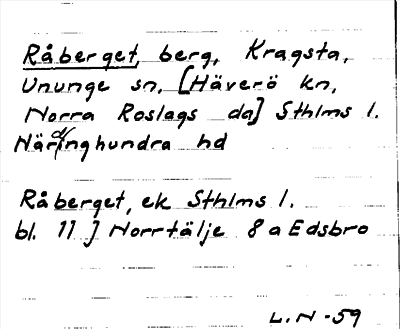 Råberget, berg, Kragsta,
Ununge sn, [Häverö kn,
Norra Roslags da] Sthlms l.
Närdinghundra hd
Råberget, ek Sthlms l.
bl. 11 ] Norrtälje 8 a Edsbro
L.N-59